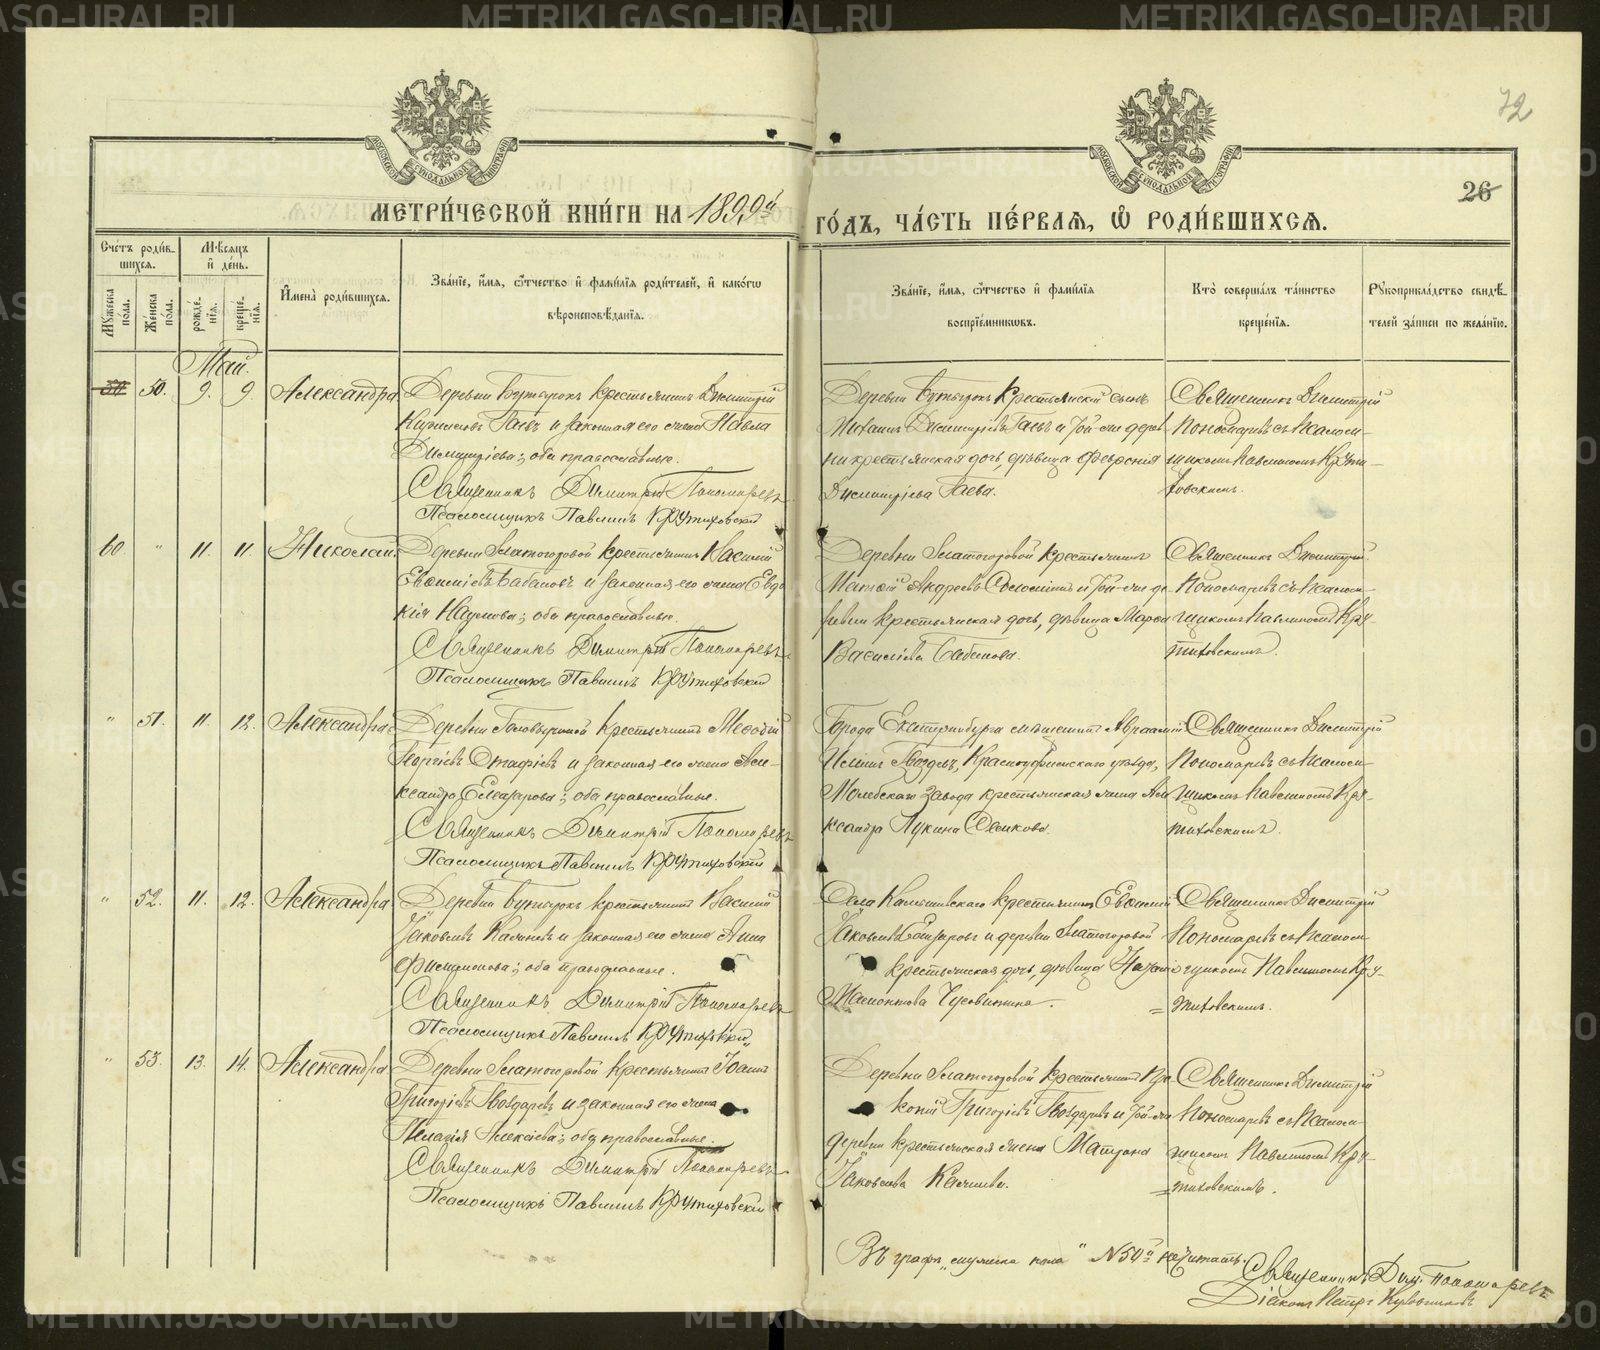 METRIKI.GASO-URAL.RU
72
26
МОСКОВСКОЙ СѴНОДАЛЬНОЙ ТИПОГРАФІИ
МЕТРИ́ЧЕСКОЙ КНИ́ГИ НА 1899й ГО́ДЪ, ЧА́СТЬ ПЕ́РВАѦ, Ѡ҆ РОДИ́ВШИХСѦ.
Сче́тъ роди́в-
шихсѧ.
Мѣ́сѧцъ
и҆ де́нь.
Мꙋ́жеска по́ла.
Же́нска по́ла.
рожде́-
нїѧ.
креще́-
нїѧ.
И҆мена̀ роди́вшихсѧ.
Зва́нїе, и҆́мѧ, ѻ҆́тчество и҆ фамı́лїѧ роди́телей, и҆ како́гѡ
вѣроисповѣ́данїѧ.
Зва́нїе, и҆́мѧ, ѻ҆́тчество и҆ фамı́лїѧ
воспрїе́мникѡвъ.
Кто̀ соверша́лъ та́инство
креще́нїѧ.
Рꙋкоприкла́дство свидѣ́-
телей за́писи по жела́нїю.
Май
50. 9. 9. Александра
Деревни Бутырокъ крестьянинъ Димитрій
Гаевъ и законная его жена Павла
Димитріева; оба православные.
Священникъ Димитрій Пономаревъ
Псаломщикъ Павлинъ Крутиховскій
Деревни Бутырокъ крестьянскій сынъ
Михаилъ Димитріевъ Гаевъ и той-же дерев-
ни крестьянская дочь, дѣвица Феврония
Димитріева Гаева.
Священникъ Димитрій
Пономаревъ съ псалом-
щикомъ Павлиномъ Крути-
ховскимъ.
60 " 11. 11. Николай.
Деревни Златогоровой крестьянинъ Василій
Евѳиміевъ Бабановъ и законная его жена Евдо-
кія Наумова; оба православные.
Священникъ Димитрій Пономаревъ
Псаломщикъ Павлинъ Крутиховскій
Деревни Златогоровой крестьянинъ
Матѳій Андреевъ и той-же де-
ревни крестьянская дочь, дѣвица
Василіева Бабанова.
Священникъ Димитрій
Пономаревъ съ псалом-
щикомъ Павлиномъ Кру-
тиховскимъ.
" 51. 11. 12. Александра
Деревни Головыриной крестьянинъ Меѳодій
Георгіевъ и законная его жена Але-
ксандра Елеазарова; оба православные.
Священникъ Димитрій Пономаревъ
Псаломщикъ Павлинъ Крутиховскій
Города Екатеринбурга мѣщанинъ Авраамій
Ильинъ Гвоздевъ, Красноуфимскаго уѣзда,
Молебскаго завода крестьянская жена Але-
ксандра Лукина
Священникъ Димитрій
Пономаревъ съ псалом-
щикомъ Павлиномъ Кру-
тиховскимъ.
" 52. 11. 12. Александра
Деревни Бутырокъ крестьянинъ Василій
Іаковлевъ Калинъ и законная его жена Анна
Филимонова; оба православные.
Священникъ Димитрій Пономаревъ
Псаломщикъ Павлинъ Крутиховскій
Села крестьянинъ Евѳимій
Іаковлевъ и деревни Златогоровой
крестьянская дочь, дѣвица
Мамонтова Чусовитина.
Священникъ Димитрій
Пономаревъ съ псалом-
щикомъ Павлиномъ Кру-
тиховскимъ.
" 53. 13. 14. Александра
Деревни Златогоровой крестьянинъ Іоаннъ
Григоріевъ Гвоздаревъ и законная его жена
Пелагія Алексіева; оба православные.
Священникъ Димитрій Пономаревъ
Псаломщикъ Павлинъ Крутиховскій
Деревни Златогоровой крестьянинъ Про-
копій Григоріевъ Гвоздаревъ и той-же
деревни крестьянская жена Матрона
Іаковлева
Священникъ Димитрій
Пономаревъ съ псалом-
щикомъ Павлиномъ Кру-
тиховскимъ.
Въ графѣ "мужеска пола" №50й не читать.
Священникъ Дим. Пономаревъ
Діаконъ Петръ